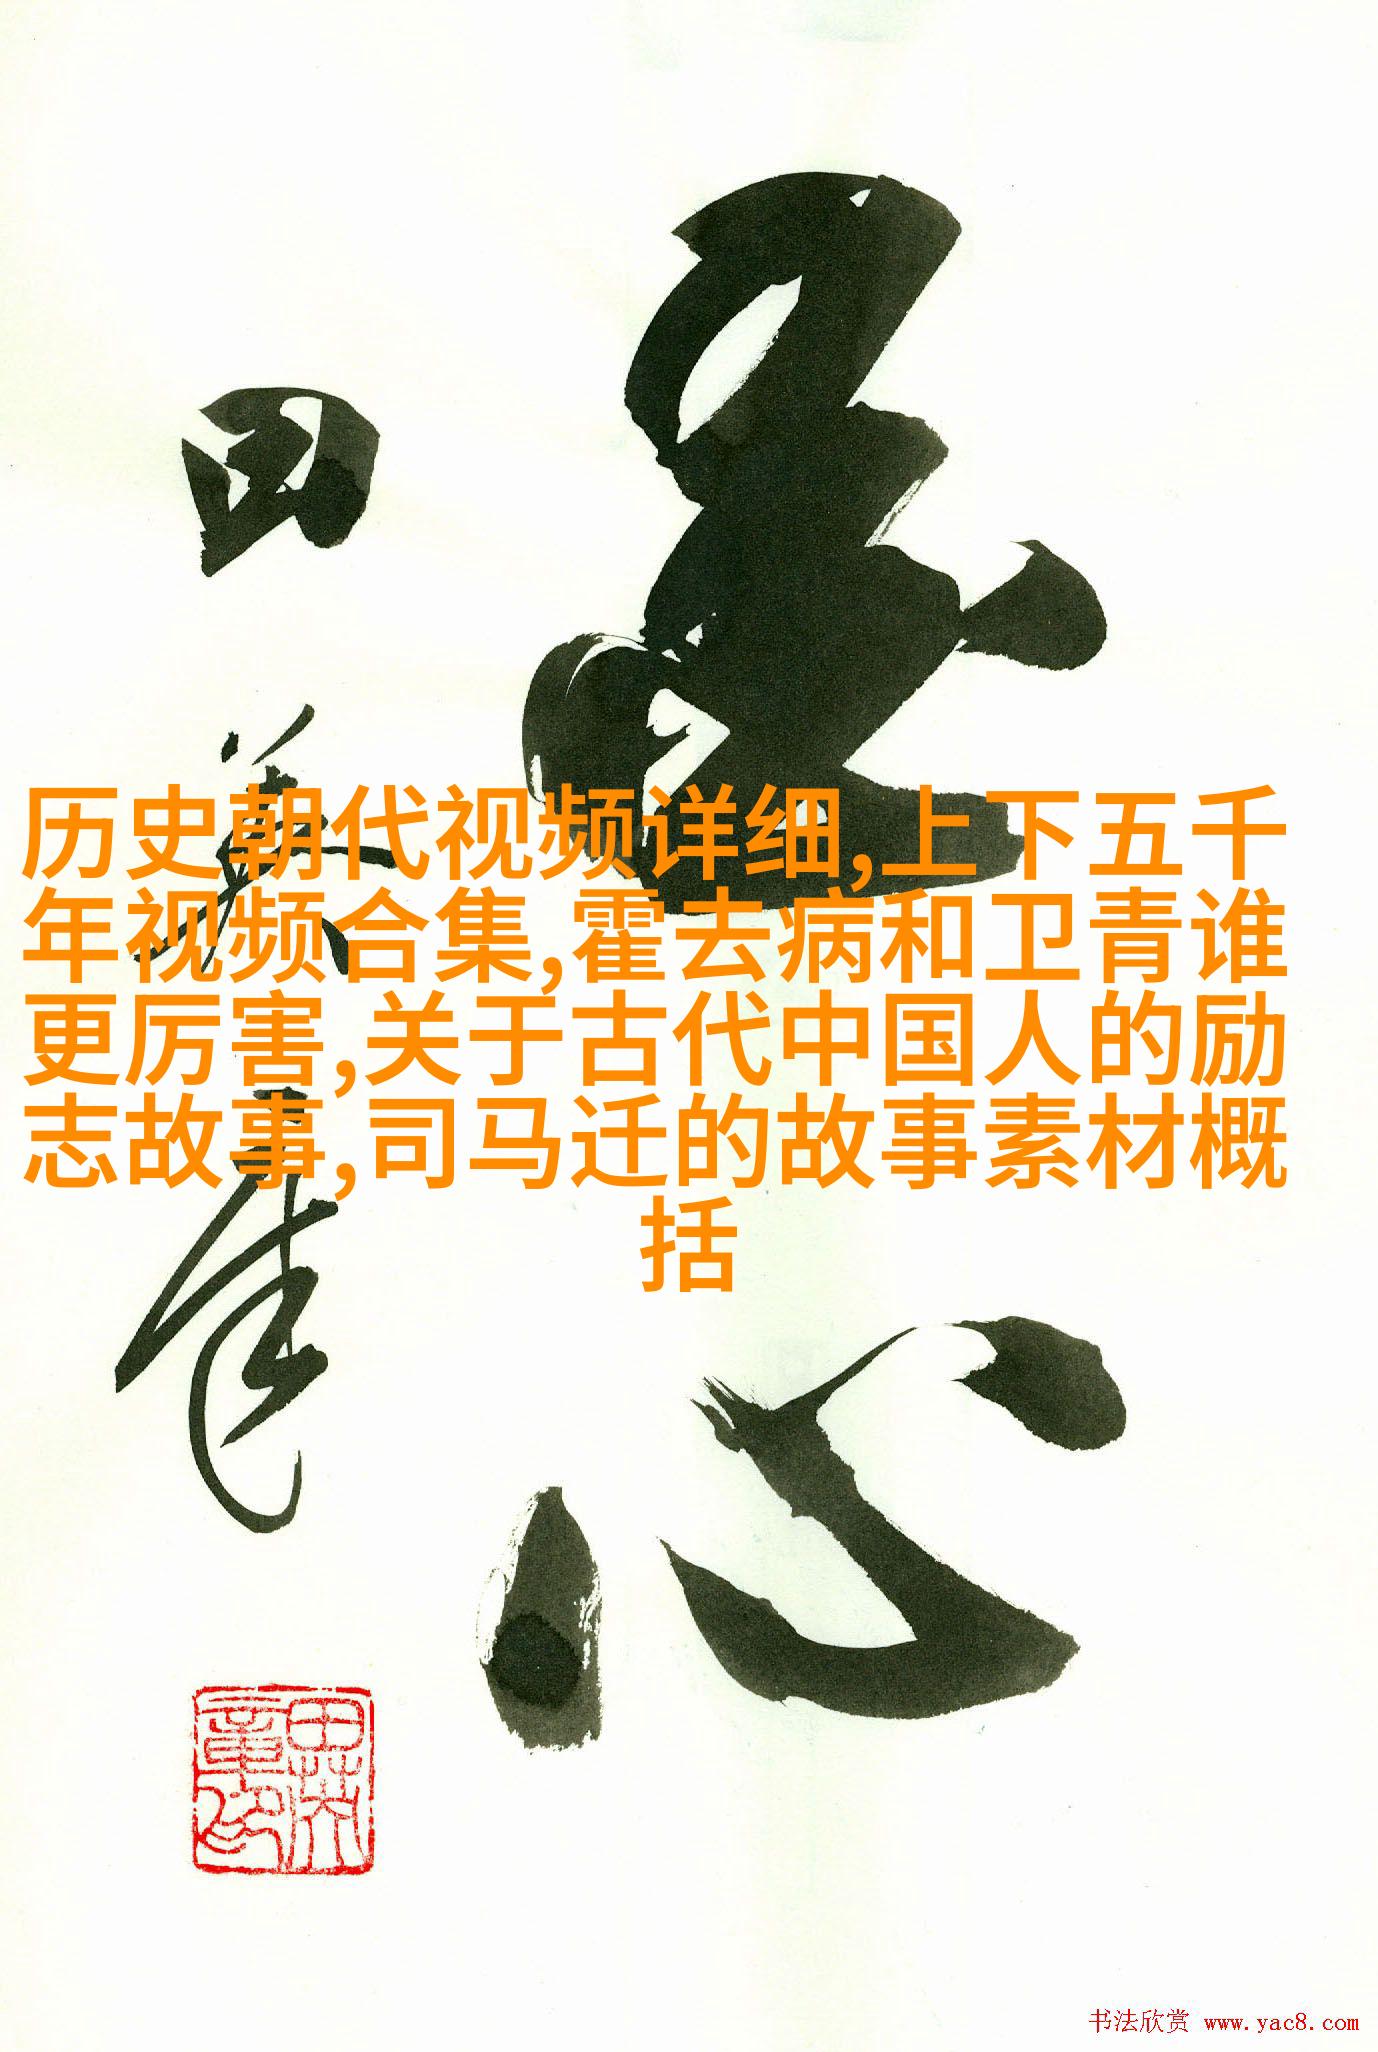 历史朝代视频详细,上下五千
年视频合集,霍去病和卫青谁
更厉害,关于古代中国人的励
志故事,司马迁的故事素材概
括
心
田英章
书法欣赏 www.yac8.com